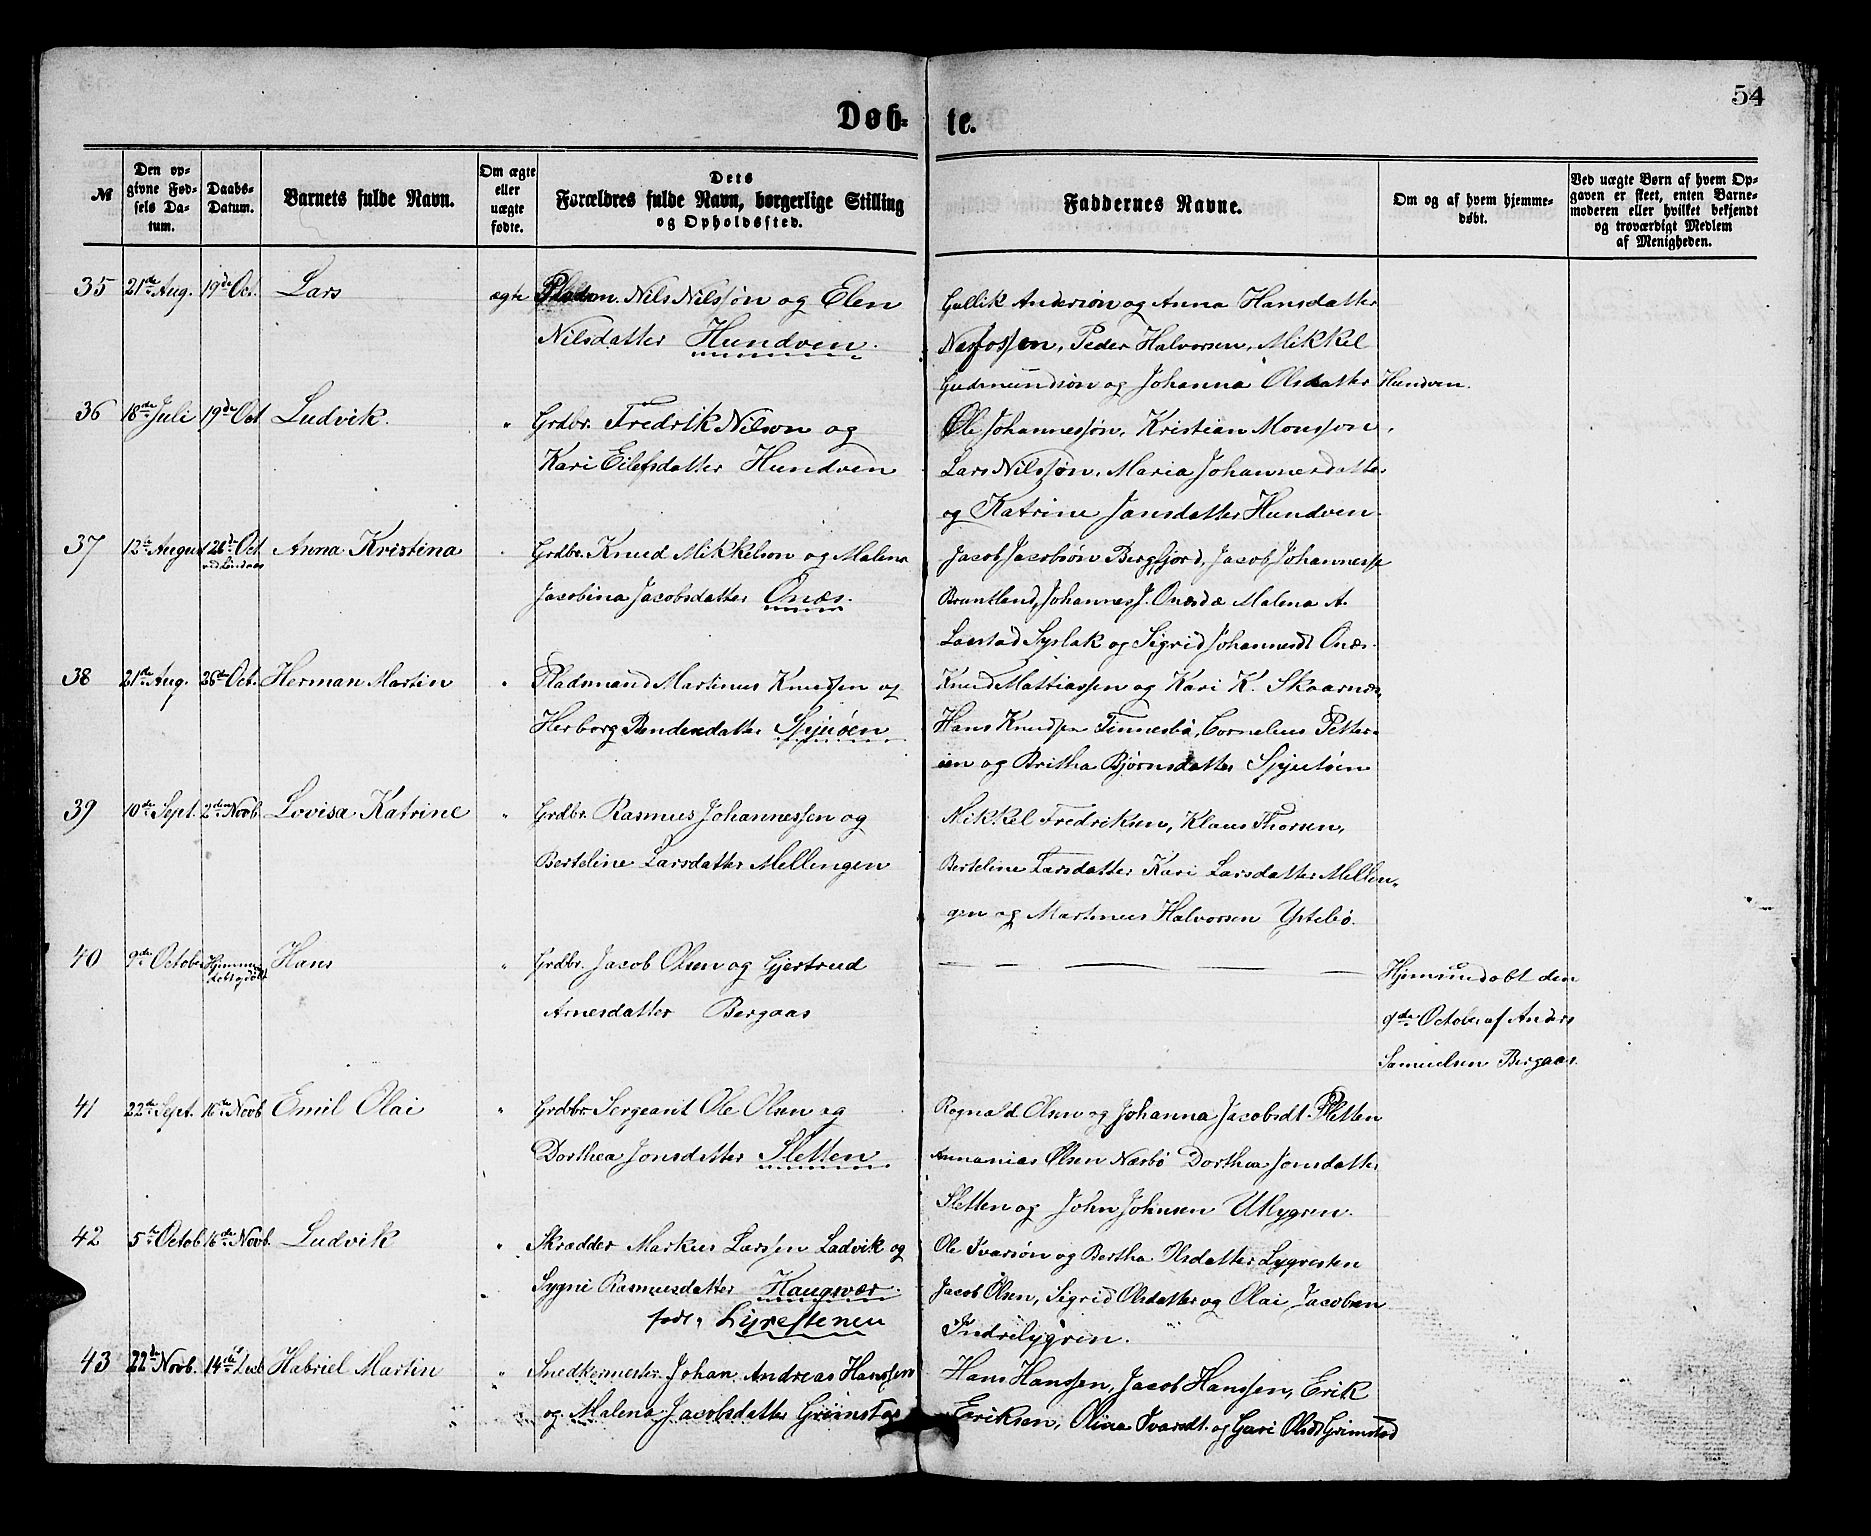 54
Døb- te.
№
Den op-
givne Fød-
sels Da-
tum.
Daabs-
Datum.
Barnets fulde Navn.
Om ægte
eller
uægte
fødte.
Dets
Forældres fulde Navn, borgerlige Stilling
og Opholdssted.
Faddernes Navne.
Om og af hvem hjemme-
døbt.
Ved uægte Børn af hvem Op-
gaven er skeet, enten Barne-
moderen eller hvilket bekjendt
og troværdigt Medlem
af Menigheden.
35 21de Aug. 19de Oct. Lars ægte Pladsm. Nils Nilssøn og Elen
Nilsdatter Hundven.
Gullik Andersøn og Anna Hansdatter
Nesfossen, Peder Halvorsen, Mikkel
Gudmundsøn og Johanna Olsdatter Hundven.
36 18de Juli 19de Oct Ludvik. " Grdbr. Fredrik Nilson og
Kari Eilefsdatter Hundven
Ole Johannessøn, Kristian Monsson,
Lars Nilssøn, Maria Johannesdatter
og Katrine Jansdatter Hundven.
37 12te August 26de Oct. Anna Kristina " Grdbr. Knud Mikkelson og Malena
ved Lindaas
Jacobina Jacobsdatter Onæs.
Jacob Jacobsøn Bergfjord, Jacob Johanness
Bruntland, Johannes J. Onæs Malena A.
Syslak og Sigrid Johannesdt Onæs.
38 21de Aug. 26de Oct. Herman Martin " Pladsmand Martinus Knudsen og
Herborg Bendixdatter Spjutøen
Knud Mattiassen og Kari K. Skaarnæs,
Hans Knudsen Finnesbø, Cornelius Petter-
sen og Britha Bjørnsdatter Spjutøen
39 10de Sept. 2den Novb. Lovisa Katrine " Grdbr. Rasmus Johannessen og
Berteline Larsdatter Mellingen
Mikkel Fredriksen, Klaus Thorsen,
Berteline Larsdatter Kari Larsdatter Mellin-
gen og Martinus Halvorsen Ytrebø.
40 9de October Hjemme-
døbt og død Hans " Grdbr. Jacob Olsen og Gjertrud
Arnesdatter Bergaas
— — — — —
Hjemmedøbt den
9de October af Anders
Samuelsen Bergaas.
41 22de Sept. 16de Novb Emil Olai " Grdbr. Sergeant Ole Olsen og
Dorthea Jonsdatter Sletten
Rognald Olsen og Johanna Jacobsdt. Sletten
Annanias Olsen Nærbø Dorthea Jonsdatter
Sletten og John Johnsen Utlygren.
42 5te Octob. 16de Novb. Ludvik " Skrædder Markus Larssen Ladvik og
Sygni Rasmusdatter Haugsvær.
født, Lygrestenen
Ole Ivarsøn og Bertha Ilsdatter Lygresten
Jacob Olsen, Sigrid Olsdatter og Olai Jacobsen
Indrelygren.
43 22de Novb. 14de Decb Habriel Martin " Snedkermester Johan Andreas Hanssen
og Malena Jacobsdatter Grimstad
Hans Hanssen, Jacob Hanssen, Erik
Eeriksen, Olina Ivarsdt. og Guri Olsdt Grimstad